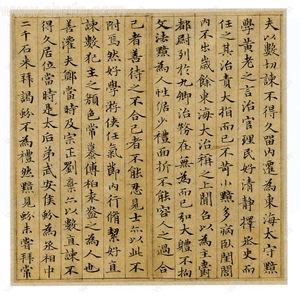 夫以數切諫不得久留內遷為東海太守黯
學黃老之言治官理民好清靜擇丞史而
任之其治責大指而已不苛小黯多病臥閨閤
內不出歲餘東海大治稱之上聞召以為主爵
都尉列於九卿治務在無為而已弘大體不拘
文法黯為人性倨少禮面折不能容人之過合
己者善待之不合己者不能忍見士亦以此不
附焉然好學游俠任氣節內行脩絜好直
諫數犯主之顏色常慕傅柏袁盎之為人也
善灌夫鄭當時及宗正劉棄亦以數直諫不
得久居位當是時太后弟武安侯蚡為丞相中
二千石來拜謁蚡不為禮然黯見蚡未嘗拜常